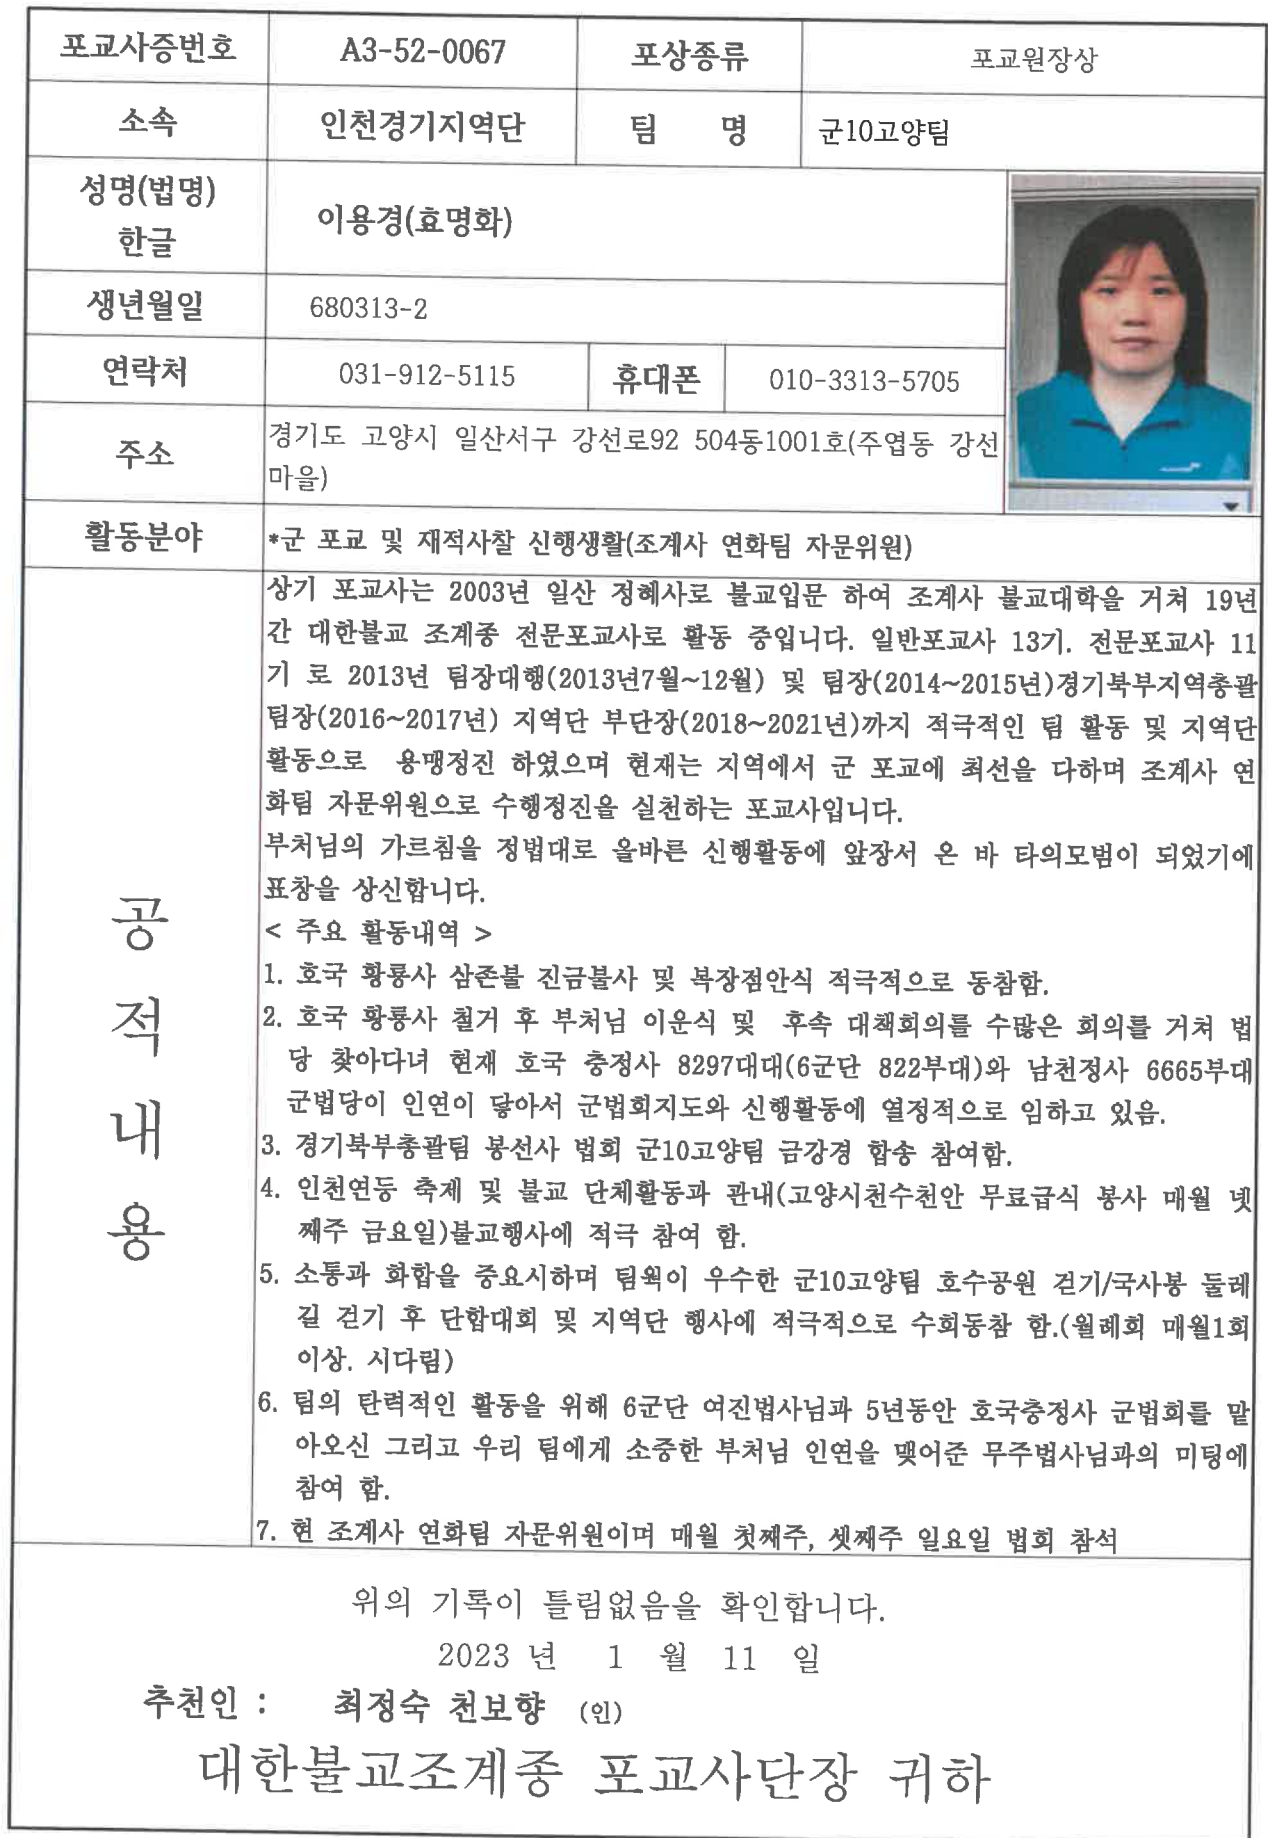 포교사증번호 A3-52-0067 포상종류 포교원장상
소속 인천경기지역단 팀 명 군10고양팀
성명(법명)
한글
이용경(효명화)
생년월일 680313-2
연락처 031-912-5115 휴대폰 010-3313-5705
주소
경기도 고양시 일산서구 강선로92 504동1001호(주엽동 강선
마을)
활동분야 *군 포교 및 재적사찰 신행생활(조계사 연화팀 자문위원)
공적내용
상기 포교사는 2003년 일산 정혜사로 불교입문 하여 조계사 불교대학을 거쳐 19년
간 대한불교 조계종 전문포교사로 활동 중입니다. 일반포교사 13기. 전문포교사 11
기 로 2013년 팀장대행(2013년7월~12월) 및 팀장(2014~2015년)경기북부지역총괄
팀장(2016~2017년) 지역단 부단장(2018~2021년)까지 적극적인 팀 활동 및 지역단
활동으로 용맹정진 하였으며 현재는 지역에서 군 포교에 최선을 다하며 조계사 연
화팀 자문위원으로 수행정진을 실천하는 포교사입니다.
부처님의 가르침을 정법대로 올바른 신행활동에 앞장서 온 바 타의모범이 되었기에
표창을 상신합니다.
< 주요 활동내역 >
1. 호국 황룡사 삼존불 진금불사 및 복장점안식 적극적으로 동참함.
2. 호국 황룡사 철거 후 부처님 이운식 및 후속 대책회의를 수많은 회의를 거쳐 법
당 찾아다녀 현재 호국 충정사 8297대대(6군단 822부대)와 남천정사 6665부대
군법당이 인연이 닿아서 군법회지도와 신행활동에 열정적으로 임하고 있음.
3. 경기북부총괄팀 봉선사 법회 군10고양팀 금강경 합송 참여함.
4. 인천연등 축제 및 불교 단체활동과 관내(고양시천수천안 무료급식 봉사 매월 넷
째주 금요일)불교행사에 적극 참여 함.
5. 소통과 화합을 중요시하며 팀웍이 우수한 군10고양팀 호수공원 걷기/국사봉 둘레
길 걷기 후 단합대회 및 지역단 행사에 적극적으로 수회동참 함.(월례회 매월1회
이상. 시다림)
6. 팀의 탄력적인 활동을 위해 6군단 여진법사님과 5년동안 호국충정사 군법회를 맡
아오신 그리고 우리 팀에게 소중한 부처님 인연을 맺어준 무주법사님과의 미팅에
참여 함.
7. 현 조계사 연화팀 자문위원이며 매월 첫째주, 셋째주 일요일 법회 참석
위의 기록이 틀림없음을 확인합니다.
2023 년 1 월 11 일
추천인 : 최정숙 천보향 (인)
대한불교조계종 포교사단장 귀하